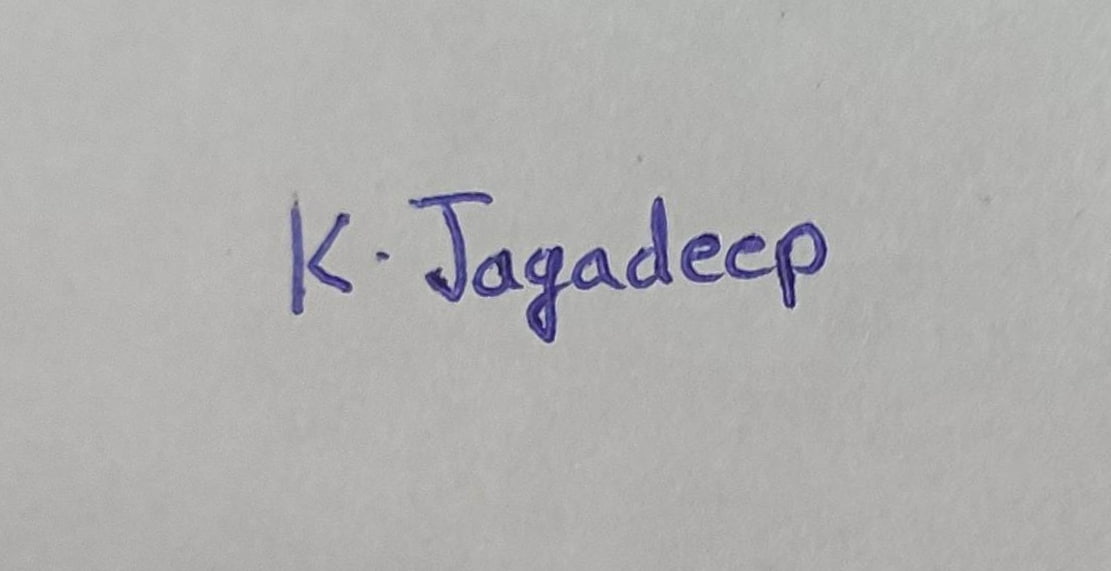 K. Jagadeep